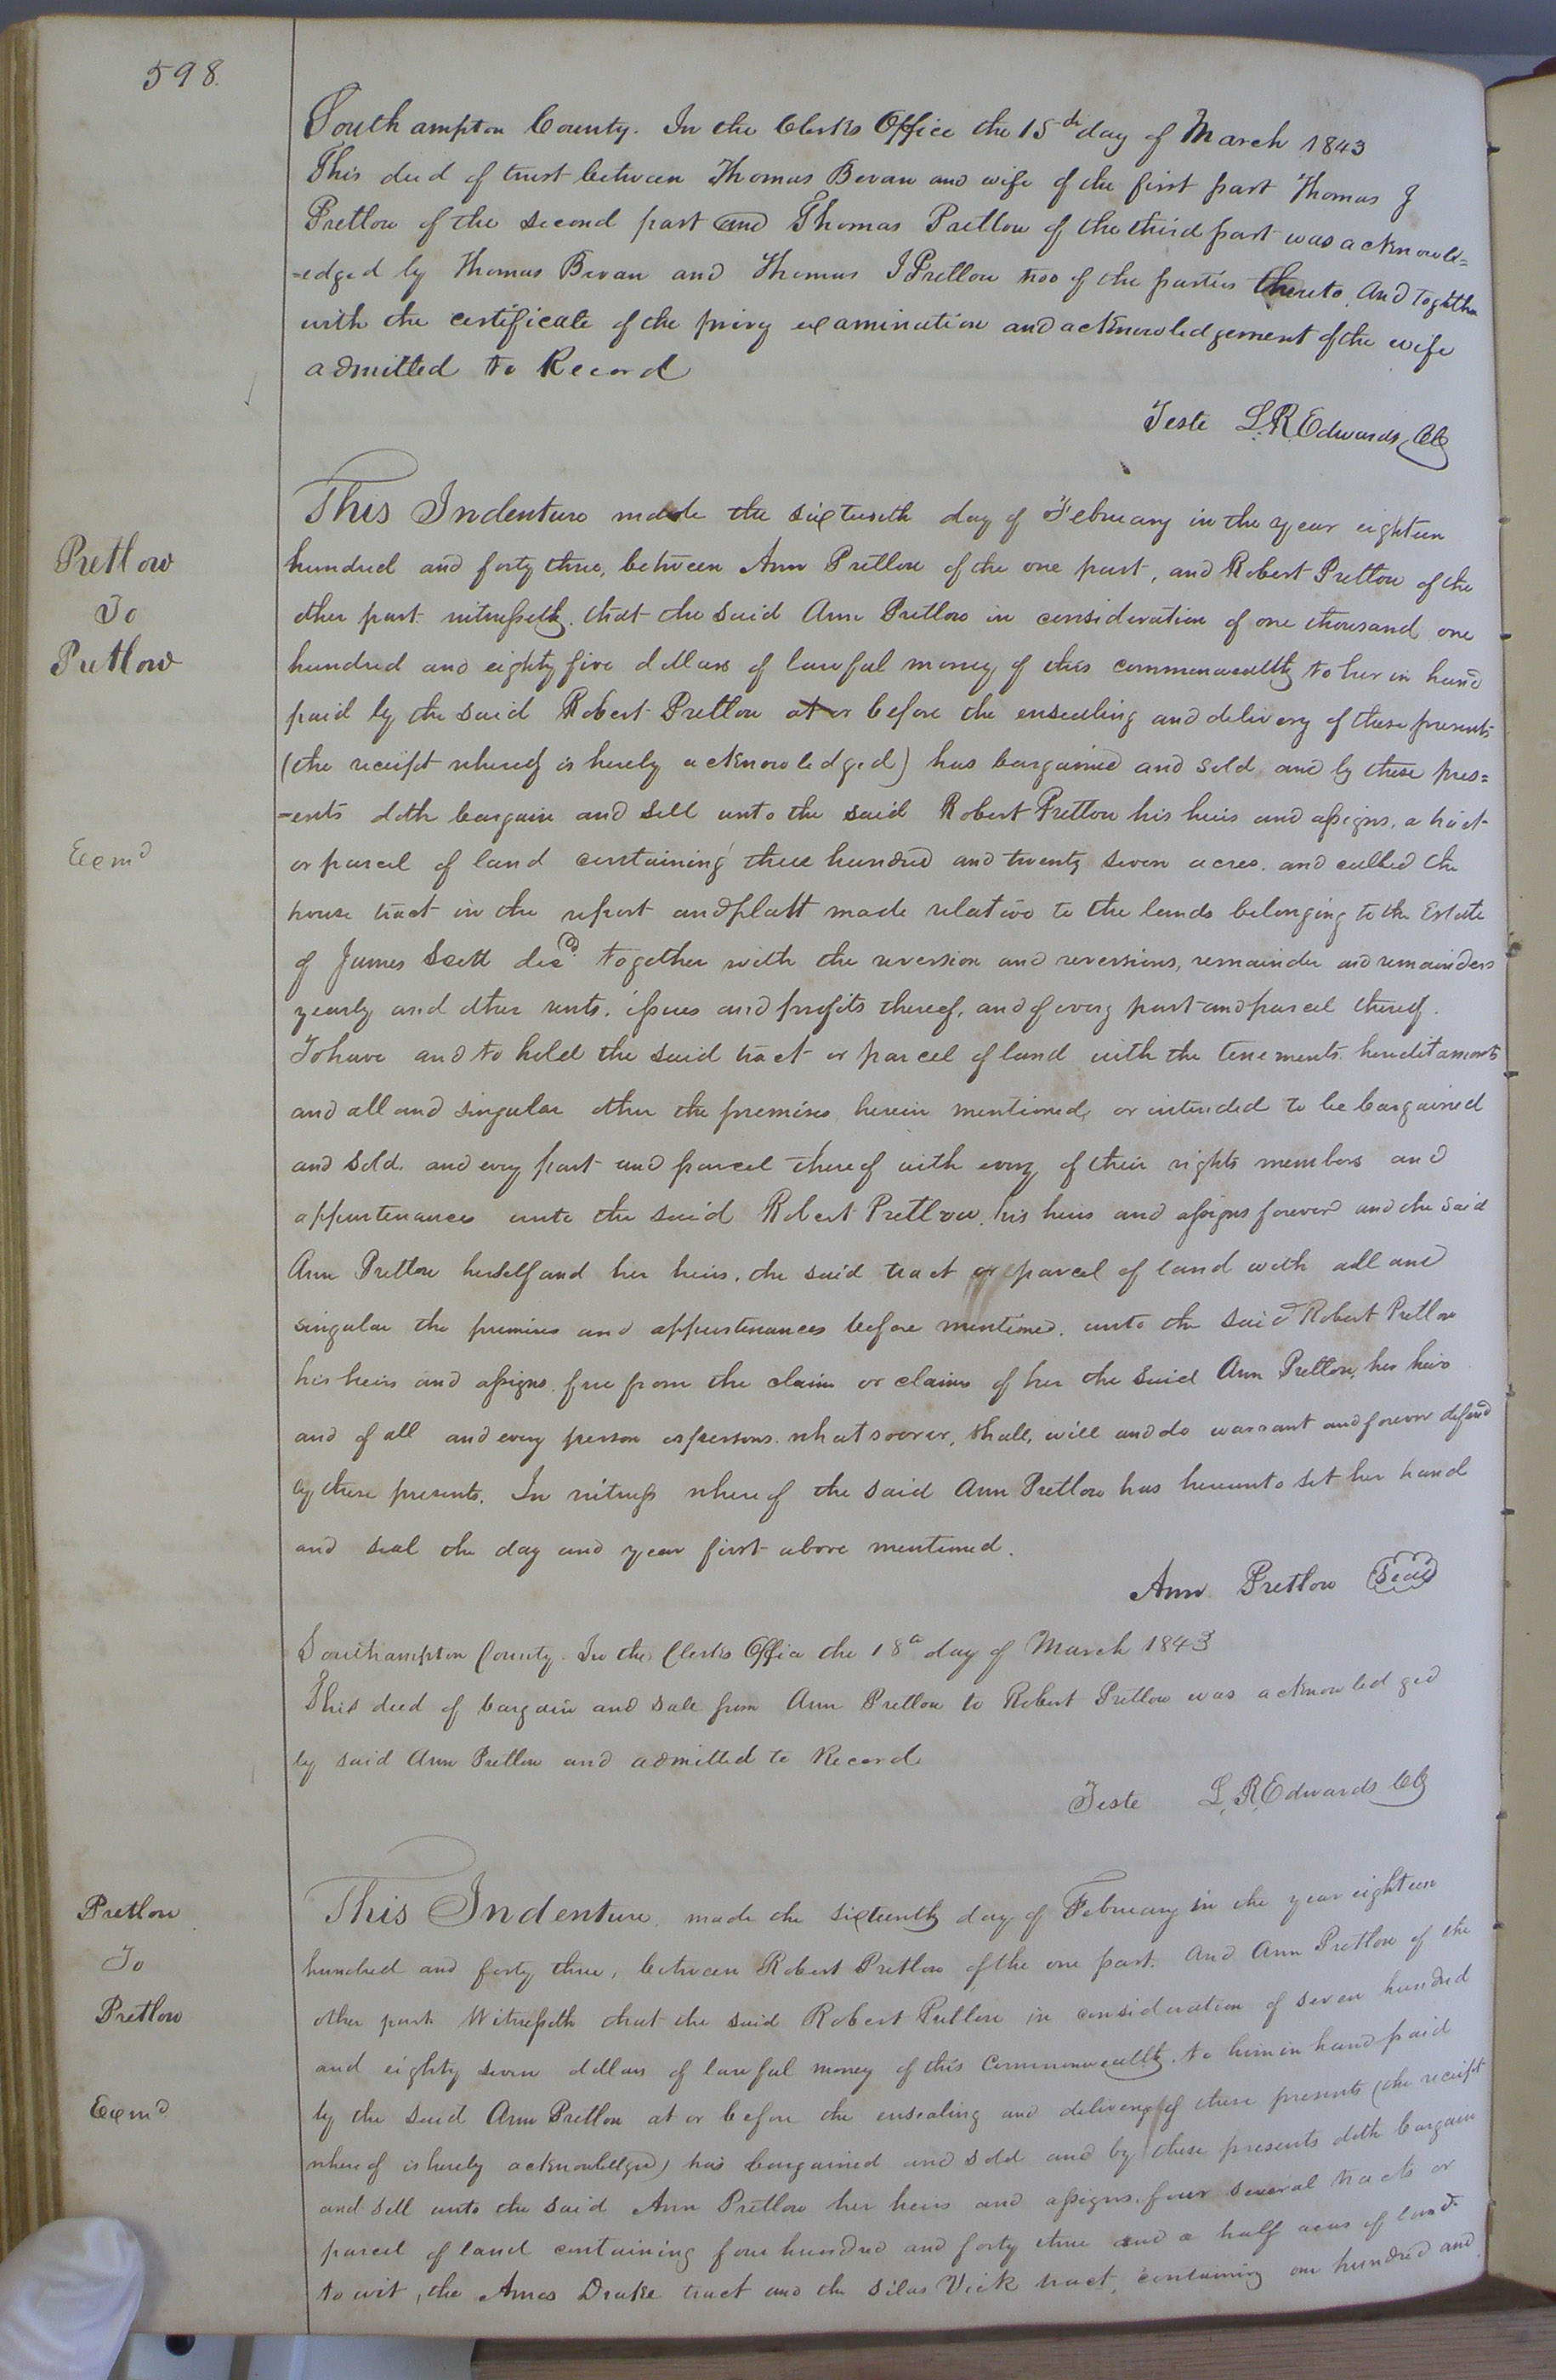 598.
Southampton County. In the Clerks Office the 15th day of March 1843
This deed of trust between Thomas Bevan and wife of the first part Thomas J
Pretlow of the second part and Thomas Pretlow of the third part was acknowl=
-edged by Thomas Bevan and Thomas J Pretlow two of the parties thereto, and together
with the certificate of the privy examination and acknowledgement of the wife
admitted to Record
Teste L. R. Edwards, CC
Pretlow
To
Pretlow
Exmd
This Indenture made the sixteenth day of February in the year eighteen
hundred and forty three, between Ann Pretlow of the one part, and Robert Pretlow of the
other part. witnesseth, that the said Ann Pretlow in consideration of one thousand one
hundred and eighty five dollars of lawful money of this commonwealth to her in hand
paid by the said Robert Pretlow at or before the ensealing and delivery of these presents
(the receipt whereof is hereby acknowledged) has bargained and sold, and by these pres=
-ents doth bargain and sell unto the said Robert Pretlow his heirs and assigns, a tract
or parcel of land containing three hundred and twenty seven acres. and called the
house tract in the report and platt made relative to the lands belonging to the Estate
of James Scott decd. together with the reversion and reversions, remainder and remainders
yearly and other rents, issues and profits thereof, and of every part and parcel thereof.
To have and to hold the said tract or parcel of land with the tenements, hereditaments
and all and singular other the premises herein mentioned, or intended to be bargained
and sold. and every part and parcel thereof with every of their rights members and
appurtenances unto the said Robert Pretlow, his heirs and assigns forever and the said
Ann Pretlow herself and her heirs, the said tract or parcel of land with all and
singular the premises and appurtenances before mentioned, unto the said Robert Pretlow
his heirs and assigns, free from the claim or claims of her the said Ann Pretlow, her heirs
and of all and every person or persons whatsoever, shall, will and do warrant and forever defend
by these presents. In witness whereof the said Ann Pretlow has hereunto set her hand
and seal the day and year first above mentioned.
Ann Pretlow Seal
Southampton County. In the Clerks Office the 18th day of March 1843
This deed of bargain and sale from Ann Pretlow to Robert Pretlow was acknowledged
by said Ann Pretlow and admitted to Record
Teste L. R. Edwards CC
Pretlow
To
Pretlow
Exmd
This Indenture, made the sixteenth day of February in the year eighteen
hundred and forty three, between Robert Pretlow of the one part. and Ann Pretlow of the
other part Witnesseth that the said Robert Pretlow in consideration of seven hundred
and eighty seven dollars of lawful money of this Commonwealth, to him in hand paid
by the said Ann Pretlow at or before the ensealing and delivery of these presents (the receipt
whereof is hereby acknowledged) has bargained and sold and by these presents doth bargain
and sell unto the said Ann Pretlow her heirs and assigns, four several tracts or
parcel of land containing four hundred and forty three and a half acres of land
to wit, the Amos Drake tract and the Silas Vick tract, containing one hundred and